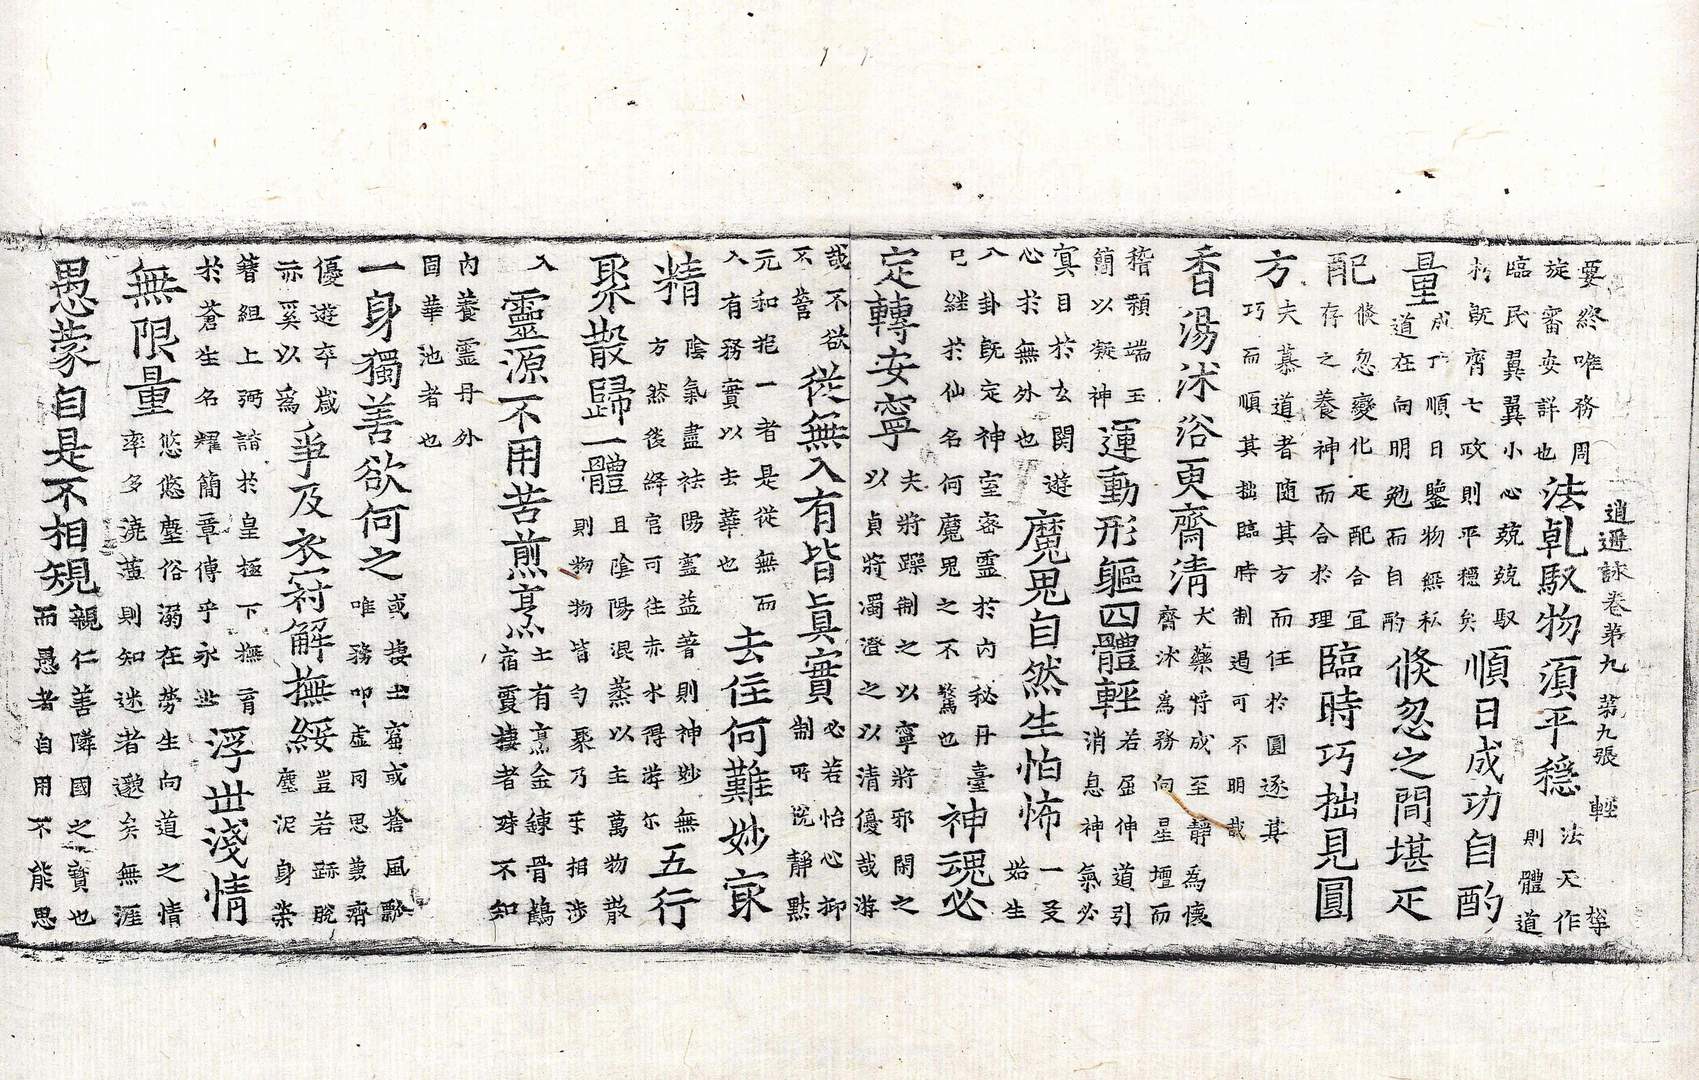 逍遥詠卷第九　第九張　輕
要終唯務周
旋審安詳也
法乹馭物須平穩
法天作
則體道
臨民翼翼小心兢兢馭
朽旣齊七政則平穩矣
順日成功自酌
量
成功順日鑒物無私
道在向明勉而自酌
倐忽之間堪疋
配
倐忽變化疋配合冝
存之養神而合於理
臨時巧拙見圓
方
夫慕道者隨其方而任於圓逐其
巧而順其拙臨時制遏可不明哉
香湯沐浴更齋清
大藥將成至靜為懷
齋沐為務向星壇而
稽顙端玉
簡以凝神
運動形軀四體輕
若屈伸道引
消息神氣必
寘目於玄関遊
心於無外也
魔鬼自然生怕怖
一爻
始生
八卦旣定神室密靈於內秘丹臺
已継於仙名何魔鬼之不驚也
神魂必
定轉安寧
夫將躁制之以寧將邪閑之
以貞將濁澄之以清優哉游
哉不欲
不營
從無入有皆眞實
必若怡心抑
制所說靜默
元和抱一者是從無而
入有務實以去華也
去住何難妙家
精
五行
陰氣盡祛陽靈益著則神妙無
方然後絳宮可往赤水得游尓
聚散歸一體
且陰陽混蒸以主萬物散
則物物皆勻聚乃乎相涉
入
靈源不用苦煎烹
士有烹金鍊骨鶴
宿霞棲者時不知
內養靈丹外
固華池者也
一身獨善欲何之
或棲土窟或捨風瓢
唯務叩虛罔思兼齊
優遊卒歲
亦奚以為
爭及衣衿解撫綏
豈若跡脫
塵泥身榮
簪組上弼諧於皇極下撫育
於蒼生名耀簡章傳乎永世
浮世淺情
無限量
悠悠塵俗溺在勞生向道之情
率多澆薄則知迷者邈矣無涯
愚蒙自是不相䂓
親仁善隣國之寶也
而愚者自用不能思